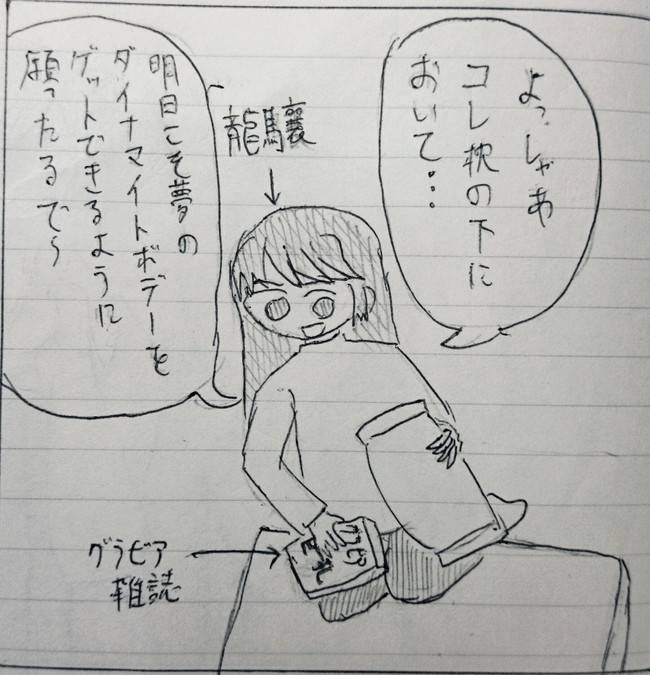 よっしゃあ
コレ枕の下に
おいて…
龍驤
明日こそ夢の
ダイナマイトボデーを
ゲットできるように
願ったるでぇ
グラビア
雑誌